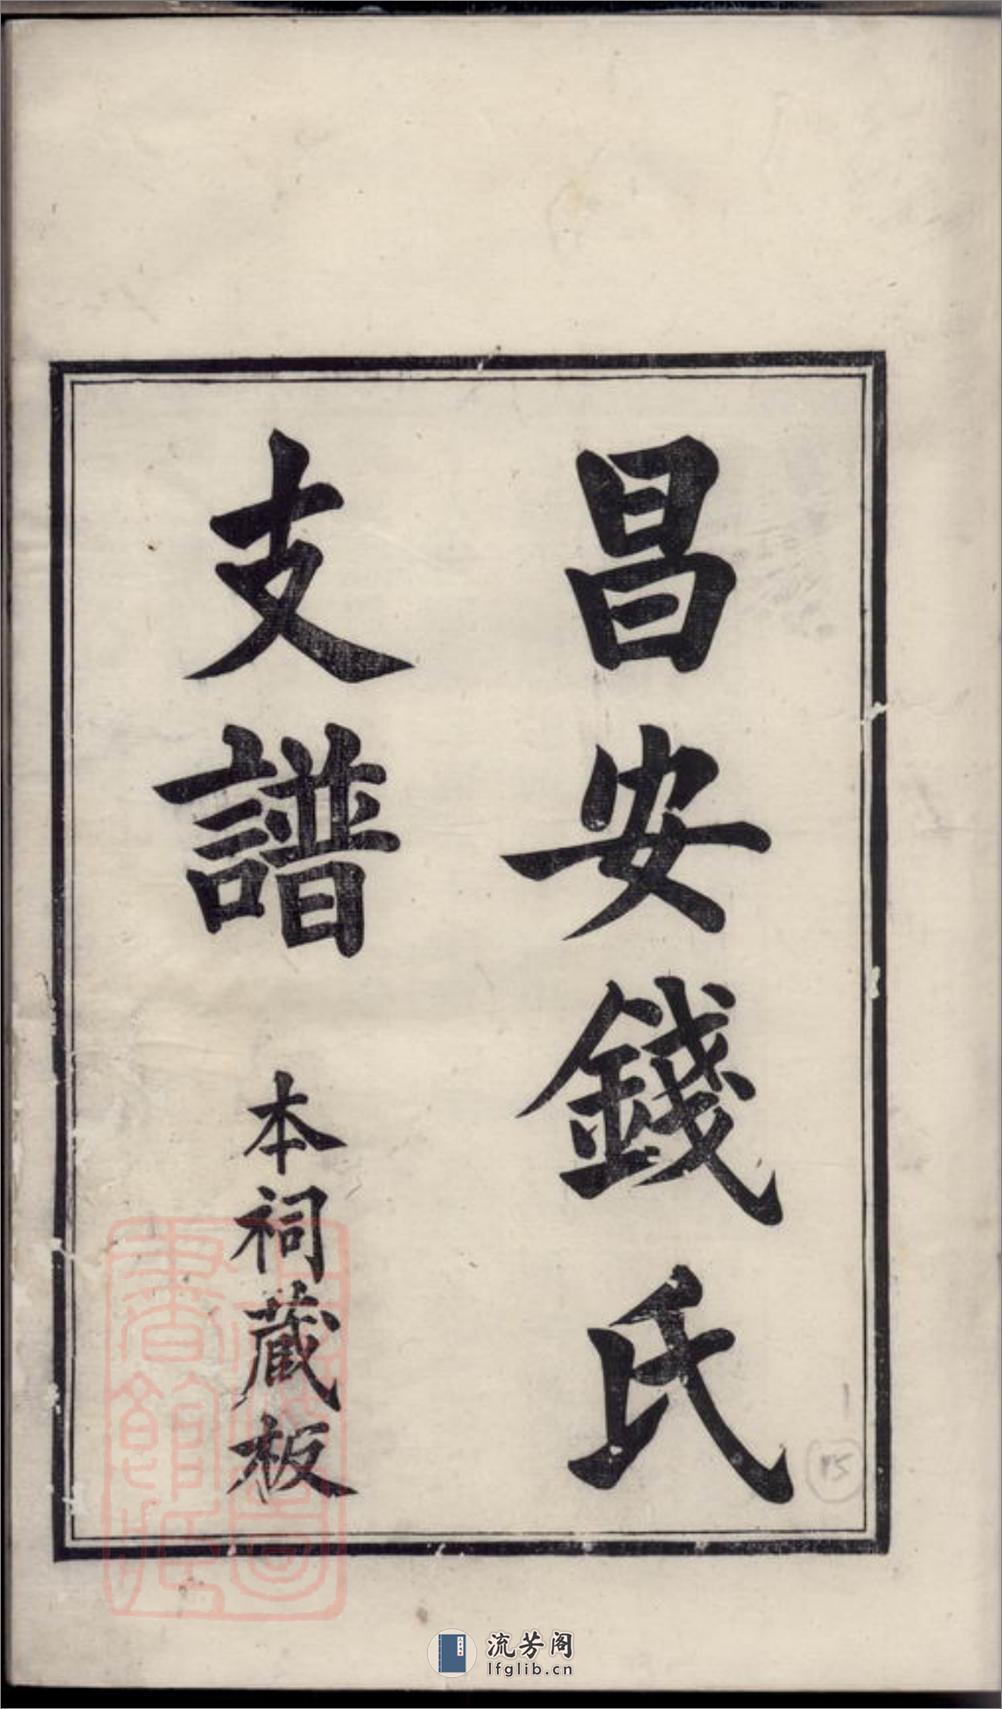 昌安錢氏
支譜
本祠蔵板
15
流芳阁
lfglib.cn